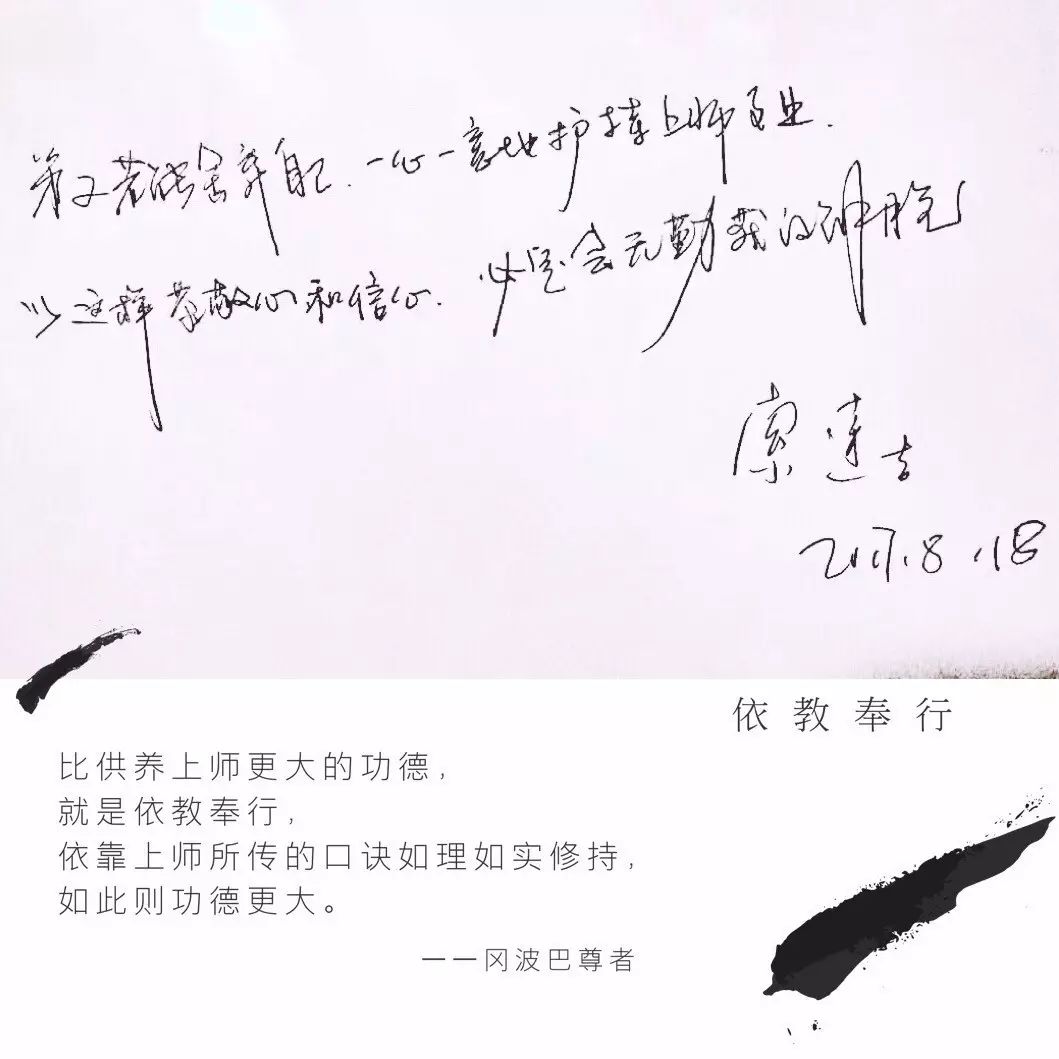 弟子若能舍弃自己.一心一意地护持上师事业.
以这样恭敬心和信心.必定会无勤获得解脱
索达吉
2017.8.18
依教奉行
比供养上师更大的功德，
就是依教奉行，
依靠上师所传的口诀如理如实修持，
如此则功德更大。
——冈波巴尊者